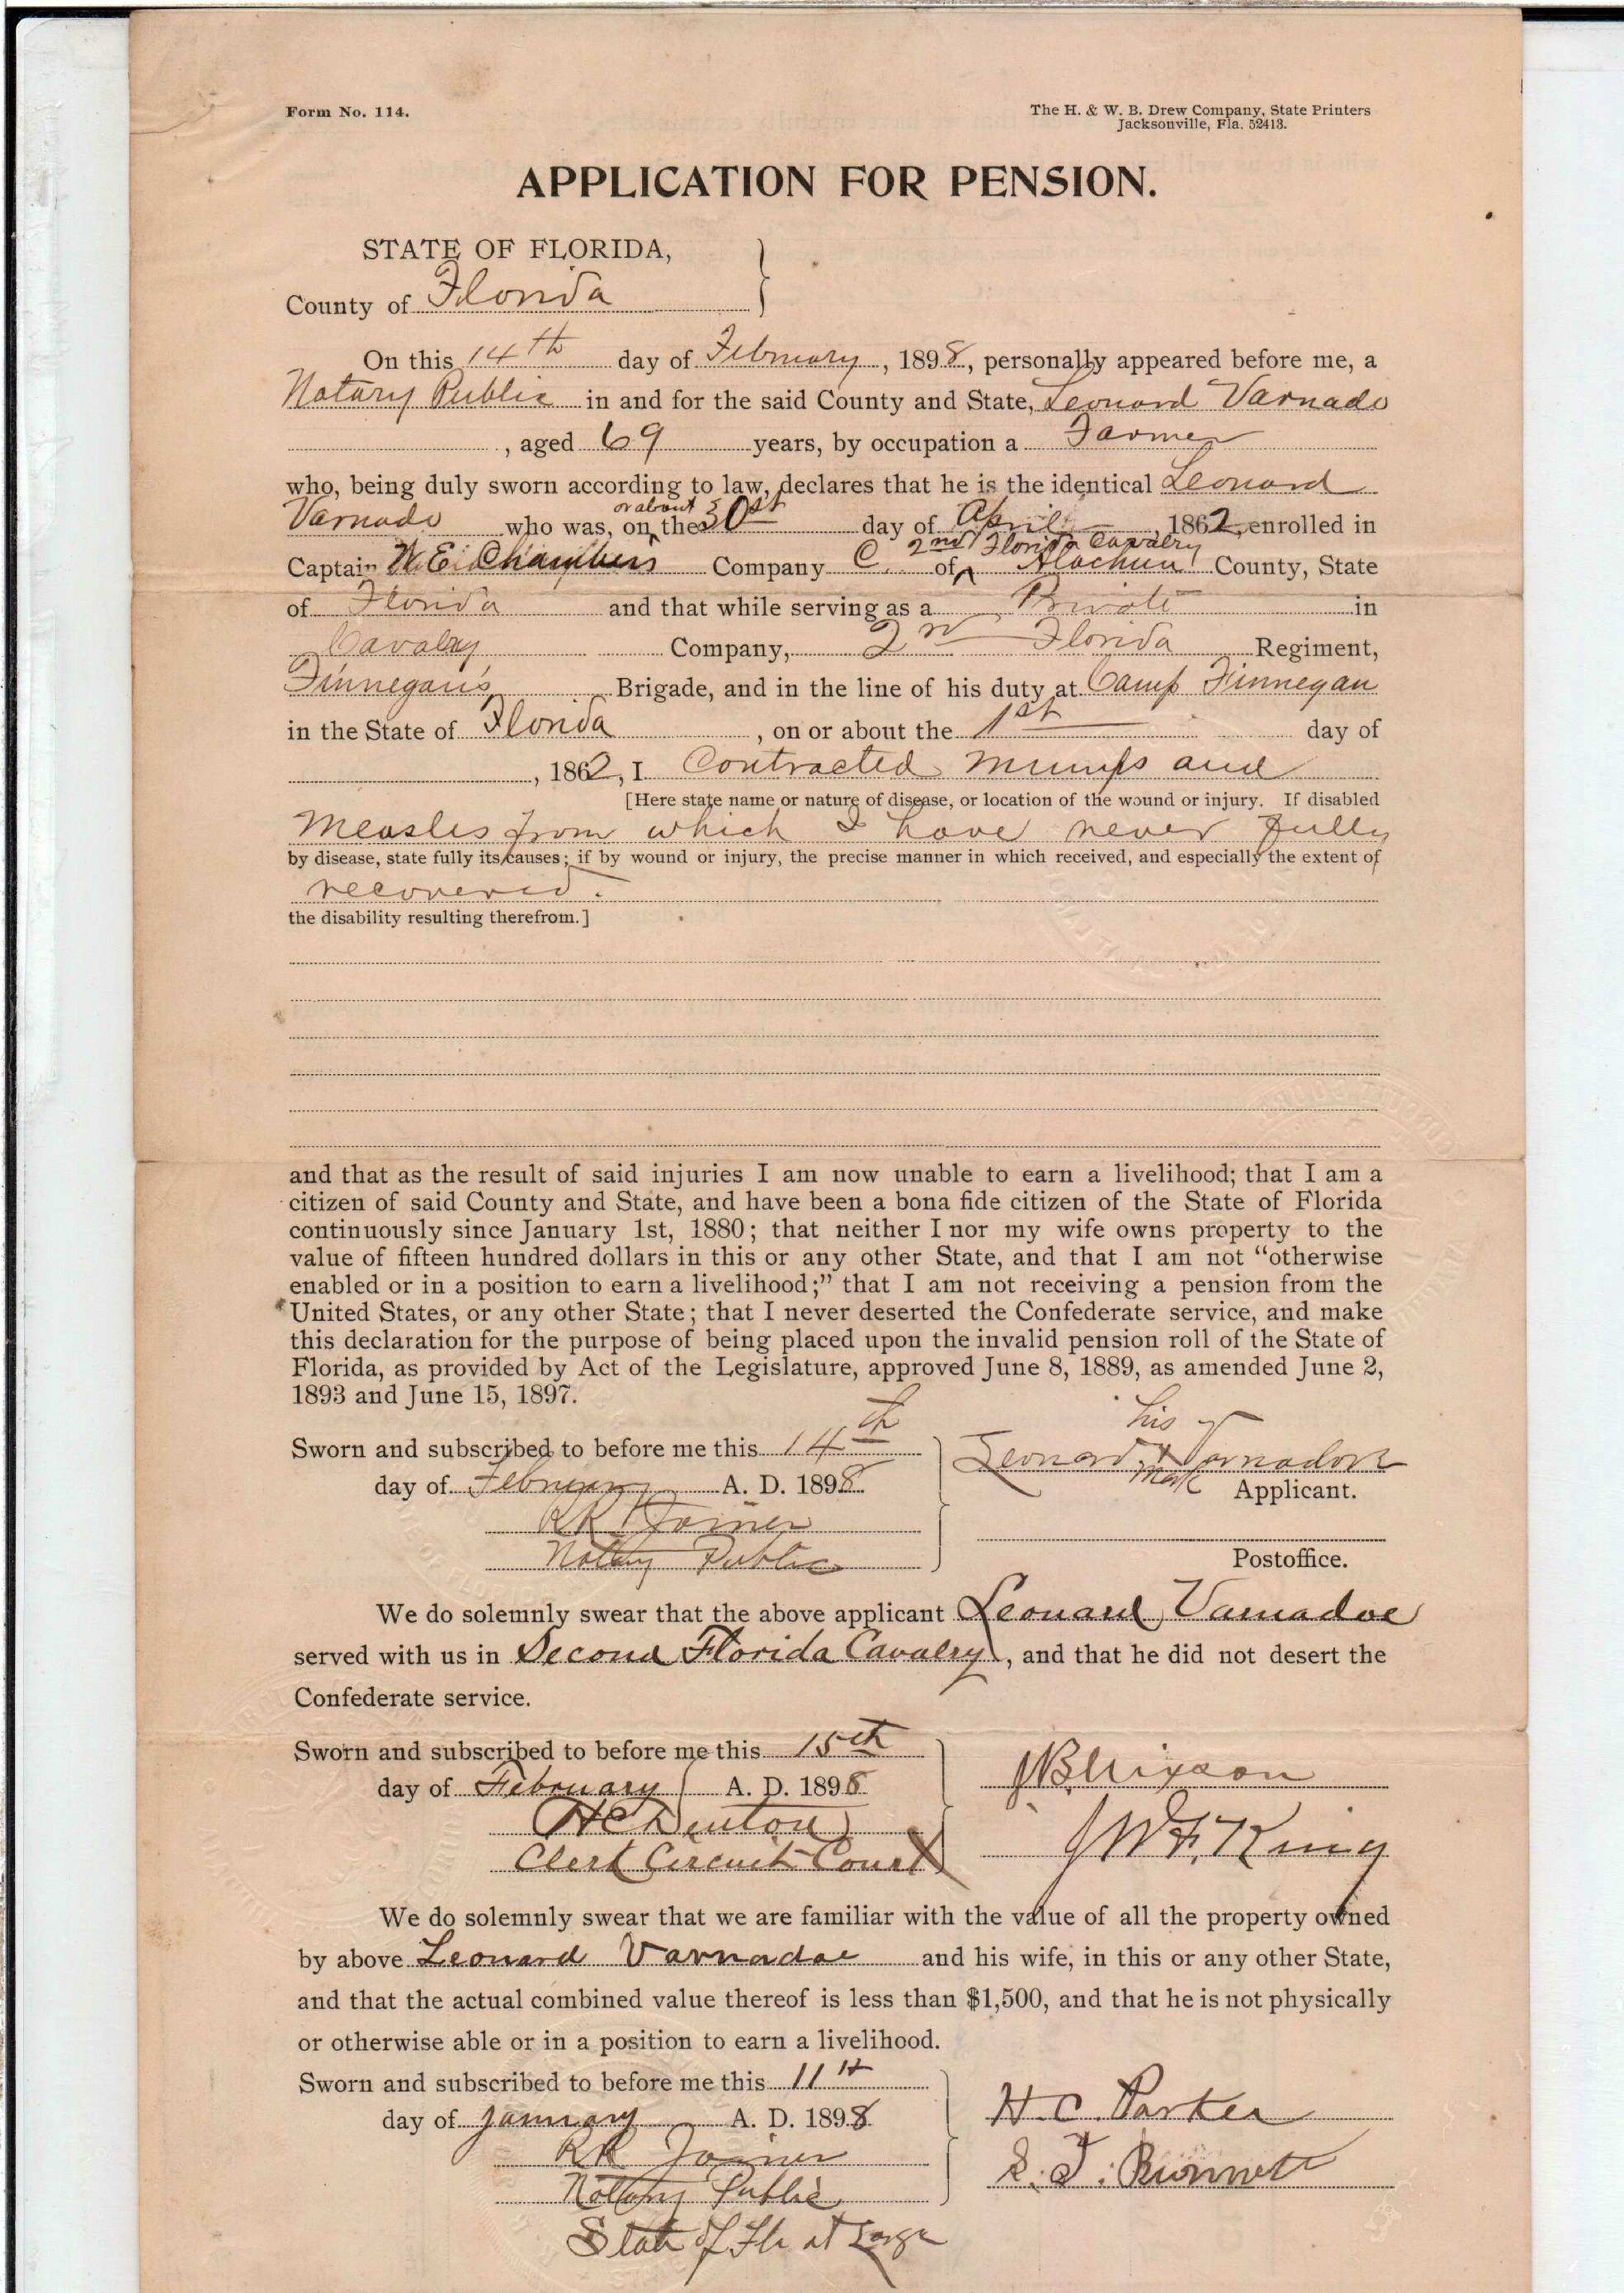 Form No. 114.
The H. & W. B. Drew Company, State Printers
Jacksonville, Fla. 52413.
APPLICATION FOR PENSION.
STATE OF FLORIDA,
County of Florida
On this 14th day of February, 1898, personally appeared before me, a
Notary Public in and for the said County and State, Leonard Varnado
, aged 69 years, by occupation a Farmer
who, being duly sworn according to law, declares that he is the identical Leonard
or about
Varnado who was, on the 30st day of April, 1862, enrolled in
2nd Florida Cavalry
Captain W. E. Chambers Company C. of Alachua County, State
of Florida and that while serving as a Private in
Cavalry Company, 2nd Florida Regiment,
Finnegan's Brigade, and in the line of his duty at Camp Finnegan
in the State of Florida, on or about the 1st day of
, 1862, I Contracted Mumps and
[Here state name or nature of disease, or location of the wound or injury. If disabled
Measles from which I have never fully
by disease, state fully its causes; if by wound or injury, the precise manner in which received, and especially the extent of
recovered.
the disability resulting therefrom.]
and that as the result of said injuries I am now unable to earn a livelihood; that I am a
citizen of said County and State, and have been a bona fide citizen of the State of Florida
continuously since January 1st, 1880; that neither I nor my wife owns property to the
value of fifteen hundred dollars in this or any other State, and that I am not "otherwise
enabled or in a position to earn a livelihood;" that I am not receiving a pension from the
United States, or any other State; that I never deserted the Confederate service, and make
this declaration for the purpose of being placed upon the invalid pension roll of the State of
Florida, as provided by Act of the Legislature, approved June 8, 1889, as amended June 2,
1893 and June 15, 1897.
his
Sworn and subscribed to before me this 14th
Leonard X Varnadore
mark
day of February A. D. 1898
Applicant.
R R Joiner
Notary Public
Postoffice.
We do solemnly swear that the above applicant Leonard Varnadoe
served with us in Second Florida Cavalry, and that he did not desert the
Confederate service.
Sworn and subscribed to before me this 15th
day of February A. D. 1898
H C Denton
Clerk Circuit Court
J W F. King
We do solemnly swear that we are familiar with the value of all the property owned
by above Leonard Varnadoe and his wife, in this or any other State,
and that the actual combined value thereof is less than $1,500, and that he is not physically
or otherwise able or in a position to earn a livelihood.
Sworn and subscribed to before me this 11th
day of January A. D. 1898
H. C. Parker
R R Joiner
S. T.
Nottary Public
State of Fla at Large